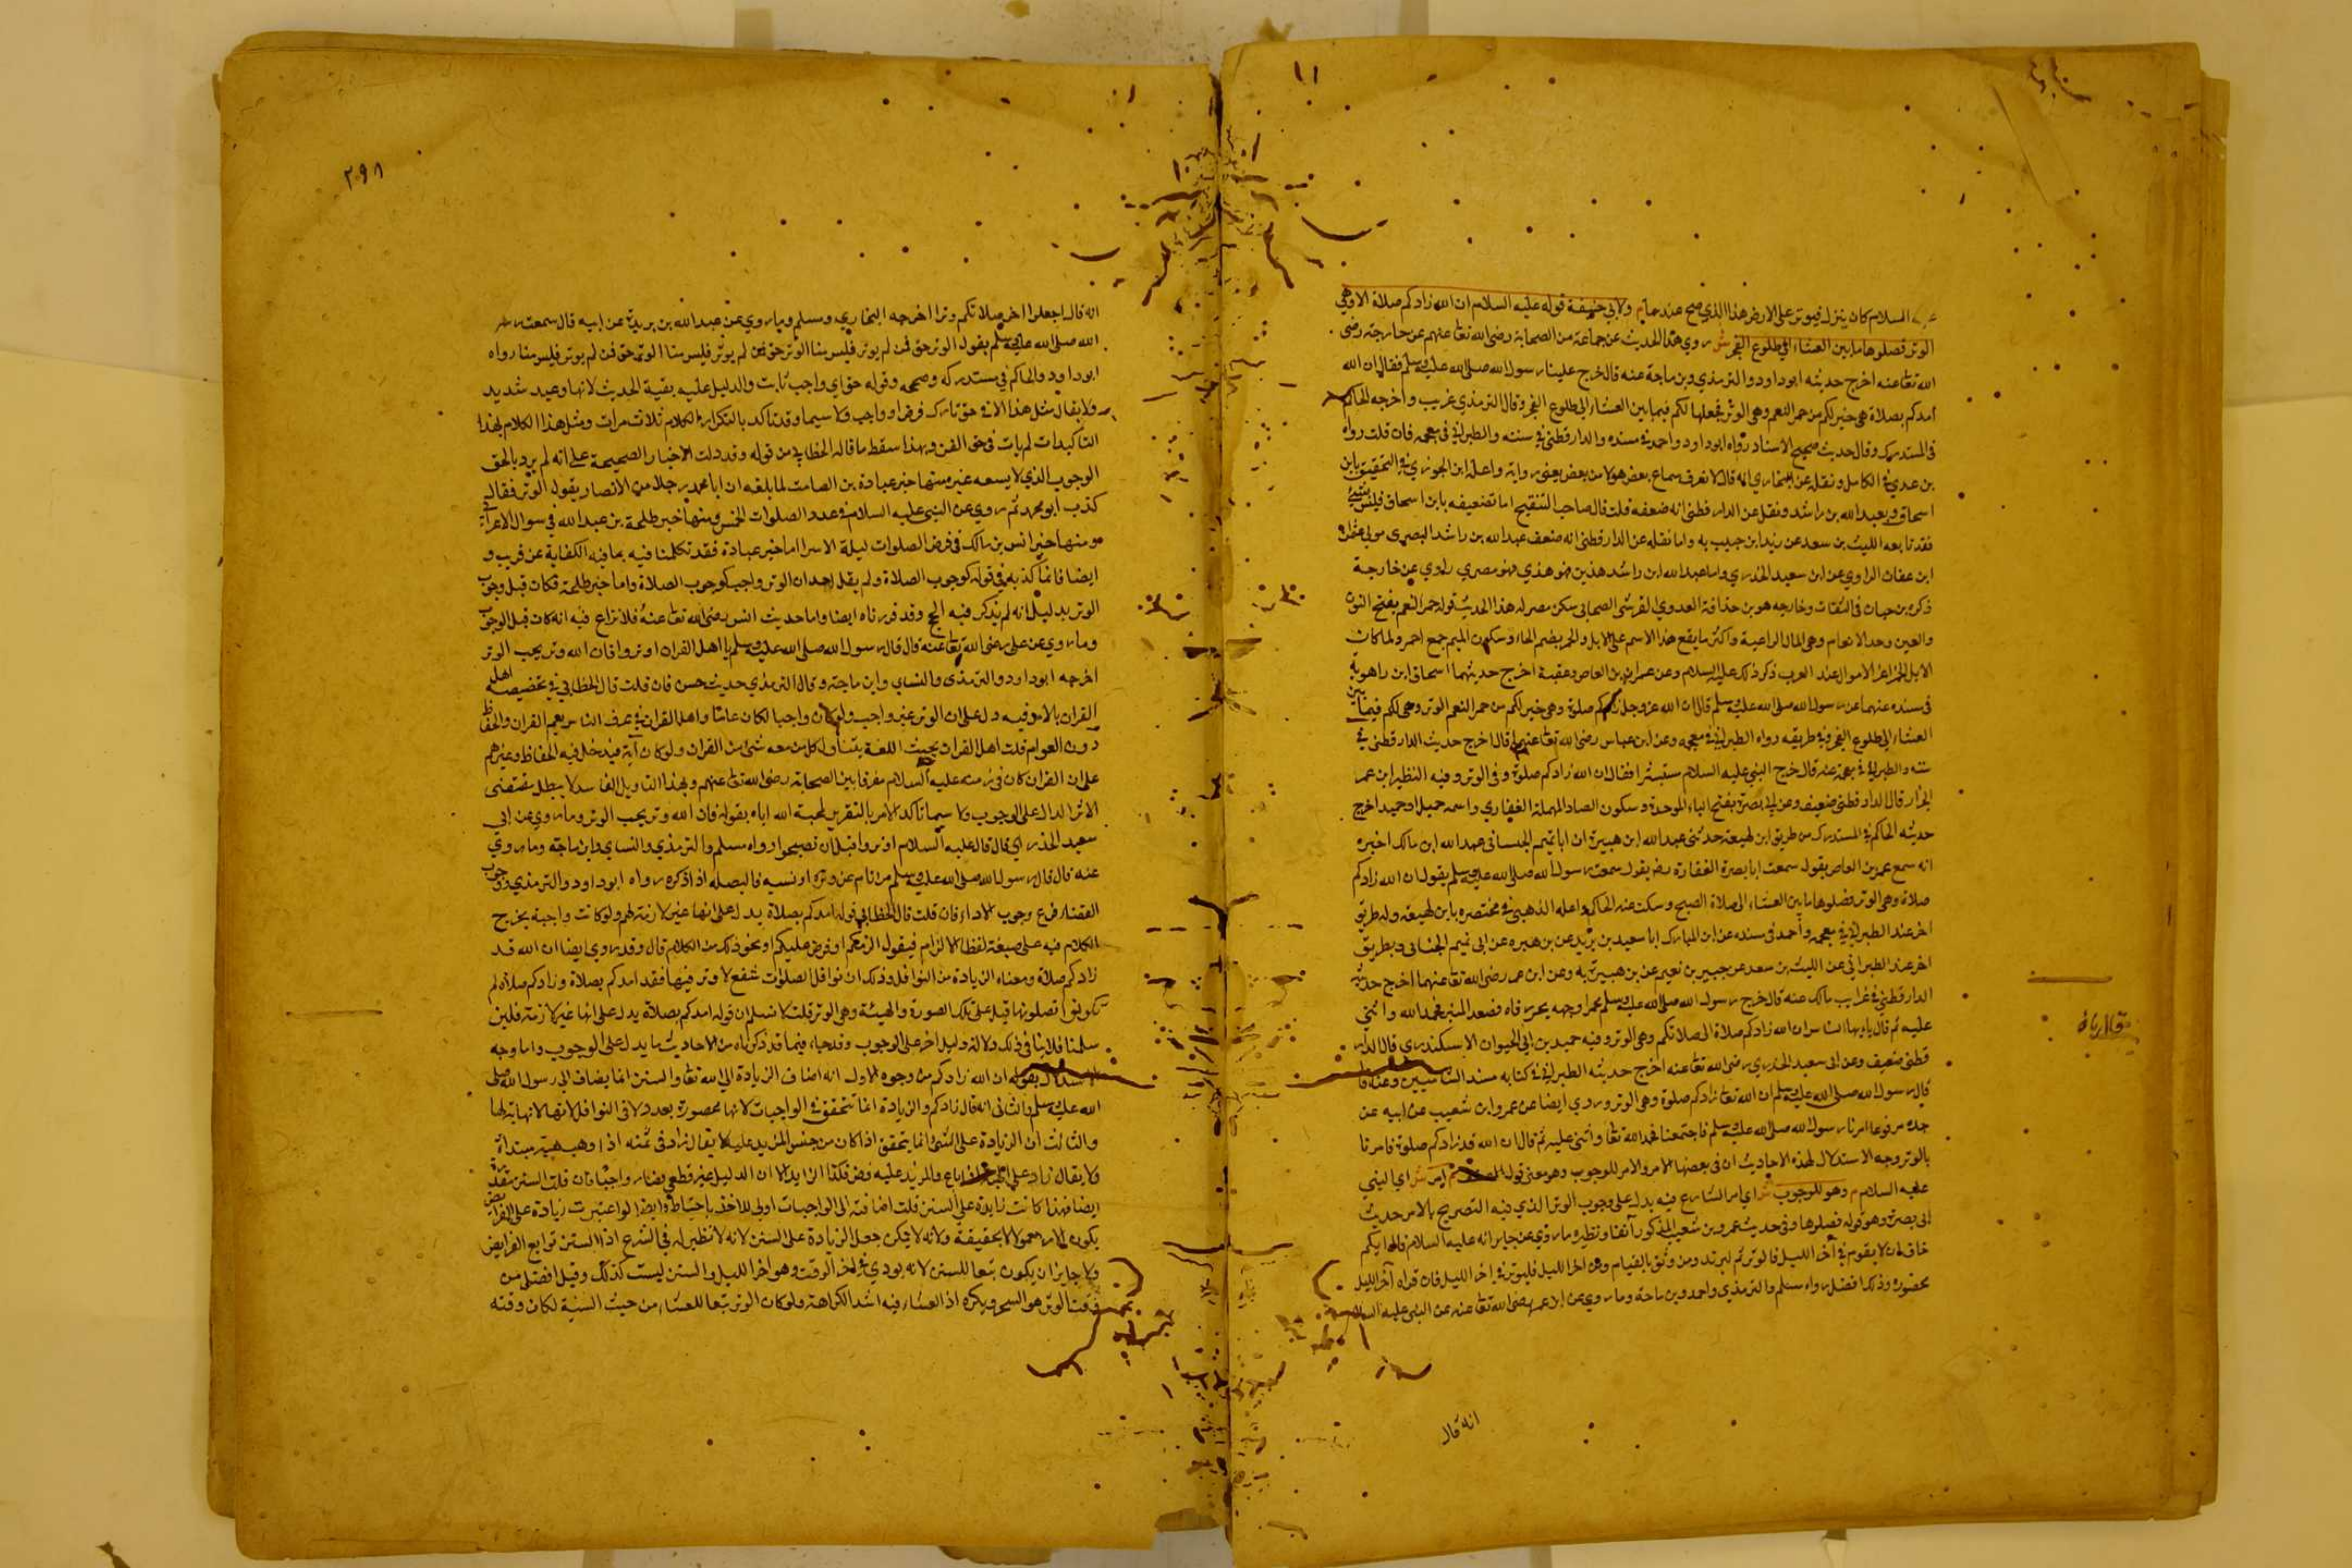 عليه السلام كان ينزل فيوتر على الارض هذا الذي صح عند م ولابي حنيفة قوله عليه السلام ان الله زادكم صلاة الا وهي
الوتر فصلوها ما بين العشاء الى طلوع الفجر ش روي هذا الحديث عن جماعة من الصحابة رضي الله تعا عنهم عن خارجة رضي
الله تعا عنه اخرج حديثه ابو داود والترمذي وبن ماجة عنه قال خرج علينا رسول الله صلى الله عليه وسلم فقال ان الله
امدكم بصلاة هي خير لكم من حمر النعم وهي الوتر فجعلها لكم فيما بين العشاء الى طلوع الفجر وقال الترمذي غريب واخرجه الحاكم
في المستدرك وقال حديث صحيح الاسناد رواه ابو داود واحمد في مسنده والدار قطني في سننه والطبراني في معجمه فان قلت رواه
بن عدي في الكامل ونقل عن البخاري انه قال لا نعرف سماع بعض هولا من بعض يعني رواية واعله ابن الجوزي في التحقيق بابن
اسحاق وبعبد الله بن راشد ونقل عن الدار قطني انه ضعفه قلت قال صاحب التنقيح اما تضعيفه بابن اسحاق فليس بشيء
فقد تابعه الليث بن سعد عن يزيد ابن حبيب به واما نقله عن الدار قطني انه ضعف عبد الله بن راشد البصري مولى عثمان
ابن عفان الراوي عن ابن سعيد الخدري واما عبد الله ابن راشد هذين هو هذي فهو مصري راوي عن خارجة
ذكره بن حبان في الثقات وخارجه هو بن حذافة العدوي القرشي الصحابي سكن مصر له هذا الحديث قوله حمر النعم بفتح النون
والعين وحد الانعام وهي المال الراعية واكثر ما يقع هذا الاسم على الابل والحمر بضم الحاء وسكون الميم جمع احمر ولما كانت
الابل الحمر اعز الاموال عند العرب ذكر ذلك عليه السلام وعن عمرو بن العاص وعقبة اخرج حديثهما اسحاق ابن راهويه
في مسنده عنهما عن رسول الله صلى الله عليه وسلم قال ان الله عز وجل زادكم صلوة وهي خير لكم من حمر النعم الوتر وهي لكم فيما بين
العشاء الى طلوع الفجر وفي طريقه رواه الطبراني في معجمه وعن ابن عباس رضي الله تعا عنهما قال اخرج حديث الدار قطني في
سننه والطبراني في معجمه عنه قال خرج النبي عليه السلام مستبشرا فقال ان الله زادكم صلوة وفي الوتر وفيه النظير ابن عمر
الخزار قال الدار قطني ضعيف وعن ابي بصرة بفتح الباء الموحدة وسكون الصاد المهملة الغفاري واسمه حميل او حميد اخرج
حديثه الحاكم في المستدرك من طريق ابن لهيعة حدثني عبد الله ابن هبيرة ان ابا تميم الجيساني عبد الله ابن مالك اخبره
انه سمع عمر بن العاص يقول سمعت ابا بصرة الغفارة رضي يقول سمعت رسول الله صلى الله عليه وسلم يقول ان الله زادكم
صلاة وهي الوتر فصلوها ما بين العشاء الى صلاة الصبح وسكت عنه الحاكم واعله الذهبي في مختصره بابن لهيعة وله طريق
اخر عند الطبراني في معجمه واحمد في مسنده عن ابن المبارك ابا سعيد بن يزيد عن بن هبيره عن ابي تميم الجنابي وبطريق
اخر عند الطبراني عن الليث بن سعد عن جبير بن نعيم عن بن هبيرة به وعن ابن عمر رضي الله تعا عنهما اخرج حديثه
الدار قطني في غرايب مالك عنه قال خرج رسول الله صلى الله عليه وسلم محمرا وجهه يجر رداه فصعد المنبر فحمد الله واثنى
عليه ثم قال يايها الناس ان الله زادكم صلاة الى صلاتكم وهي الوتر وفيه حميد بن ابي الجون الاسكندري قال الدار
قطني ضعيف وعن ابي سعيد الخدري رضي الله تعا عنه اخرج حديثه الطبراني في كتابه مسند الشاميين وعنه قال
قال رسول الله صلى الله عليه وسلم ان الله تعا زادكم صلوة وهي الوتر وروي ايضا عن عمرو ابن شعيب عن ابيه عن
جده مرفوعا امرنا رسول الله صلى الله عليه وسلم فاجتمعنا فحمد الله تعا واثنى عليه ثم قال ان الله قد زادكم صلوة فامرنا
بالوتر وجه الاستدلال لهذه الاحاديث ان في بعضها الامر والامر للوجوب وهو معنى قول المصنف م امر ش اي النبي
عليه السلام م وهو للوجوب ش اي امر الشارع فيه يدل على وجوب الوتر الذي فيه التصريح بالامر حديث
ابي بصرة وهو قوله فصلوها وفي حديث عمرو بن شعيب المذكور آنفا ونظيره ما روي عن جابر انه عليه السلام قال ايكم
خاف ان لا يقوم في آخر الليل فاليوتر ثم ليرقد ومن وثق بالقيام من اخر الليل فليوتر في اخر الليل فان قراه آخر الليل
محضورة وذلك افضل رواه مسلم والترمذي واحمد وبن ماجة وما روي عن ابن عمر رضي الله تعا عنه عن النبي عليه السلام
انه قال
٢٩٨
انه قال اجعلوا اخر صلاتكم وترا اخرجه البخاري ومسلم وما روي عن عبد الله بن بريدة عن ابيه قال سمعت رسول
الله صلى الله عليه وسلم يقول الوتر حق فمن لم يوتر فليس منا الوتر حق فمن لم يوتر فليس منا الوتر حق فمن لم يوتر فليس منا رواه
ابو داود والحاكم في مستدركه وصححه وقوله حق اي واجب ثابت والدليل عليه بقية الحديث لانها وعيد شديد
ولا يقال مثل هذا الا في حق تارك فرض او واجب ولا سيما وقد تاكد بالتكرار في الكلام ثلاث مرات ومثل هذا الكلام بهذا
التاكيدات لم يات في حق السنن وبهذا سقط ما قاله الخطابي من قوله وقد دلت الاخبار الصحيحة على انه لم يرد بالحق
الوجوب الذي لا يسعه غير منها خبر عبادة بن الصامت لما بلغه ان ابا محمد رجلا من الانصار يقول الوتر فقال
كذب ابو محمد ثم روي عن النبي عليه السلام في عدد الصلوات الخمس ومنها خبر طلحة بن عبد الله في سوال الاعرابي
ومنها خبر انس بن مالك في فرض الصلوات ليلة الاسرا اما خبر عبادة فقد تكلمنا فيه بما فيه الكفاية عن قريب و
ايضا فانما كذبه في قوله كوجوب الصلاة ولم يقل احد ان الوتر واجب كوجوب الصلاة واما خبر طلحة فكان قبل وجوب
الوتر بدليل انه لم يذكر فيه الحج وقد قررناه ايضا واما حديث انس رضي الله تعا عنه فلا نزاع فيه انه كان قبل الوجوب
وما روي عن علي رضي الله تعا عنه قال قال رسول الله صلى الله عليه وسلم يا اهل القران اوتروا فان الله وتر يحب الوتر
اخرجه ابو داود والترمذي والنساي وابن ماجة وقال الترمذي حديث حسن فان قلت قال الخطابي في تخصيصه اهل
القران بالامر فيه دل على ان الوتر غير واجب ولو كان واجبا لكان عاما واهل القران في عرف الناس يعم القران والحفاظ
دون العوام قلت اهل القران بحيث اللغة يتناول كل من معه شئ من القران ولو كان آية فيدخل فيه الحفاظ وغيرهم
على ان القران كان في زمنه عليه السلام مفرقا بين الصحابة رضي الله تعا عنهم وبهذا التاويل الفاسد لا يبطل مقتضى
الاثر الدال على الوجوب ولا سيما تاكد الامر بالتقرير لمحبة الله اياه بقوله فان الله وتر يحب الوتر وما روي عن ابي
سعيد الخدري قال قال عليه السلام اوتروا قبل ان تصبحوا رواه مسلم والترمذي والنساي وابن ماجة وما روي
عنه قال قال رسول الله صلى الله عليه وسلم من نام عن وتره او نسيه فاليصله اذا ذكره رواه ابو داود والترمذي ووجوب
القضاء فرع وجوب الاداء فان قلت قال الخطابي قوله امدكم بصلاة يدل على انها غير لازمة لهم ولو كانت واجبة يخرج
الكلام فيه على صيغة لفظ الالزام فيقول الزمكم او فرض عليكم او نحو ذلك من الكلام قال وقد روي ايضا ان الله قد
زادكم صلاة ومعناه الزيادة من النوافل وذلك ان نوافل الصلوات شفع لا وتر فيها فقد امدكم بصلاة وزادكم صلاة لم
تكونوا تصلونها قبل على تلك الصورة والهيئة وهي الوتر قلت لا نسلم ان قوله امدكم بصلاة يدل على انها غير لازمة فلين
سلمنا فلا ينافي ذلك دلالة دليل اخر على الوجوب وقد جاء فيما قد ذكرناه من الاحاديث ما يدل على الوجوب واما وجه
الاستدلال بقوله ان الله زادكم من وجوه الاول انه اضاف الزيادة الى الله تعا والسنن انما يضاف الى رسول الله صلى
الله عليه وسلم والثاني انه قال زادكم والزيادة انما تتحقق في الواجبات لانها محصورة بعدد لا في النوافل لانها لا نهاية لها
والثالث ان الزيادة على الشئ انما يتحقق اذا كان من جنس المزيد عليه لا يقال زاد في ثمنه اذا وهب هبة مبتداة
ولا يقال زاد على باع فالمزيد عليه فرض فكذا الزايد الا ان الدليل غير قطعي فصار واجبا فان قلت السنن مقدرة
ايضا فهذا كانت زايدة على السنن قلت اضافته الى الواجبات اولى للاخذ باحتياط وايضا لو اعتبرت زيادة على الفرايض
يكون الامر معمولا بحقيقة ولانه لا يمكن جعل الزيادة على السنن لانه لا نظير له في الشرع اذ السنن توابع الفرايض
ولا جايز ان يكون تبعا للسنن لانه يودي في اخر الوقت وهو اخر الليل والسنن ليست كذلك وقيل افضل من
وقت الوتر هو السحر ويكره اذ العشاء فيه اشد الكراهة ولو كان الوتر تبعا للعشاء من حيث السنية لكان وقته